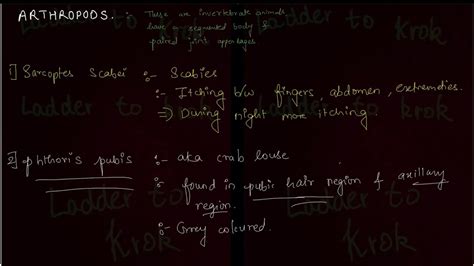 ARTHROPODS. :- These are invertebrate animals
have a segmented body &
paired joint appendages
1] Sarcoptes Scabei :- Scabies
:- Itching b/w fingers, abdomen, extremedies.
⇒ During night more itching.
2] phthoris pubis :- aka crab louse
:- found in pubic hair region & axillary
region.
:- Grey coloured.
Ladder to
Krok
Ladder to
Krok
Ladder to
Krok
Ladder to
Krok